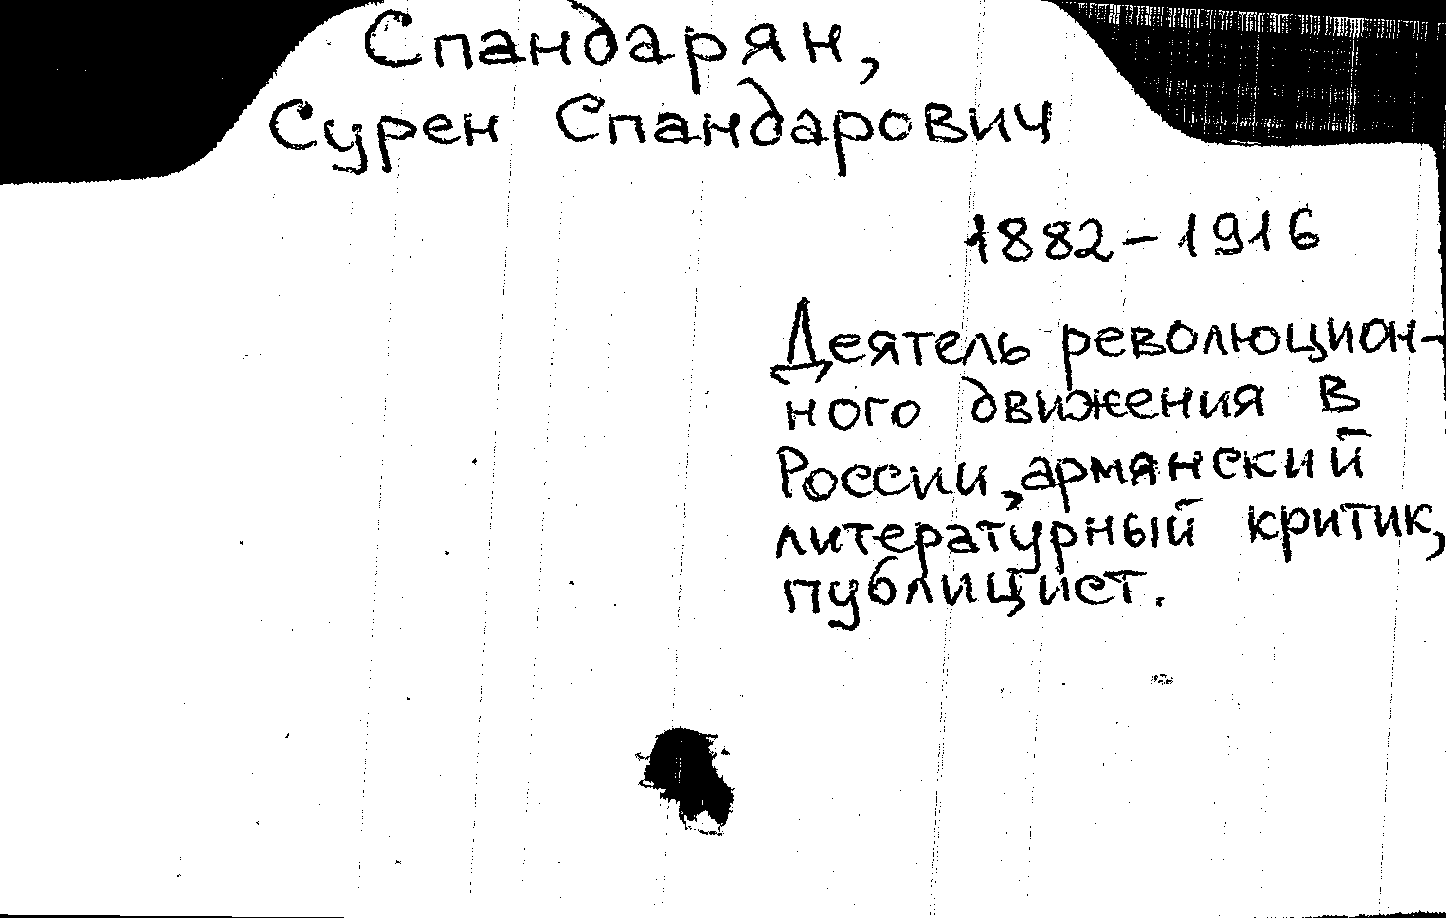 Спандарян,
Сурен Спандарович
1882-1916
Деятель революцион-
ного движения в
России, армянский
литературный критик,
публицист.